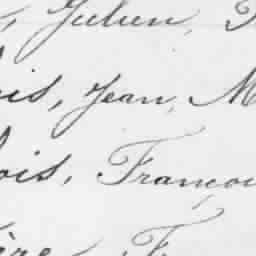 , Julien,
is, Jean, M
ois, Françoi
ère, F